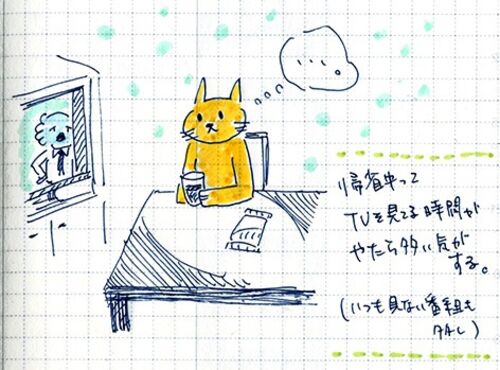 ...。
帰省中って
TVを見てる時間が
やたら多い気が
する。
(いつも見ない番組も
タんし)